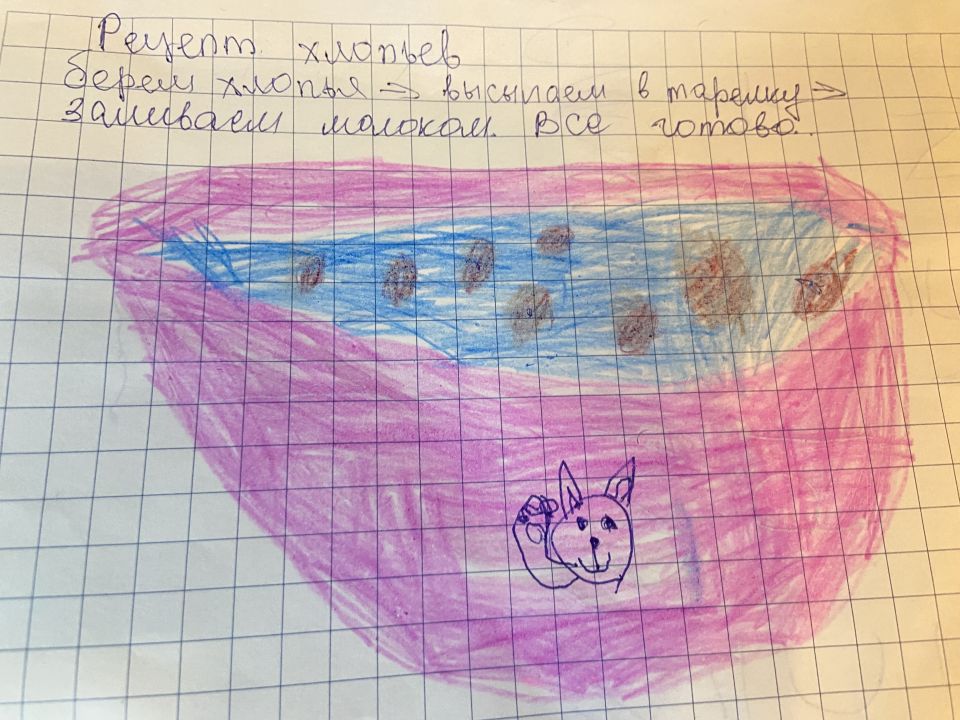 Рецепт хлопьев
берем хлопья ⇒ высыпаем в тарелку ⇒
заливаем молоком. Все готово.